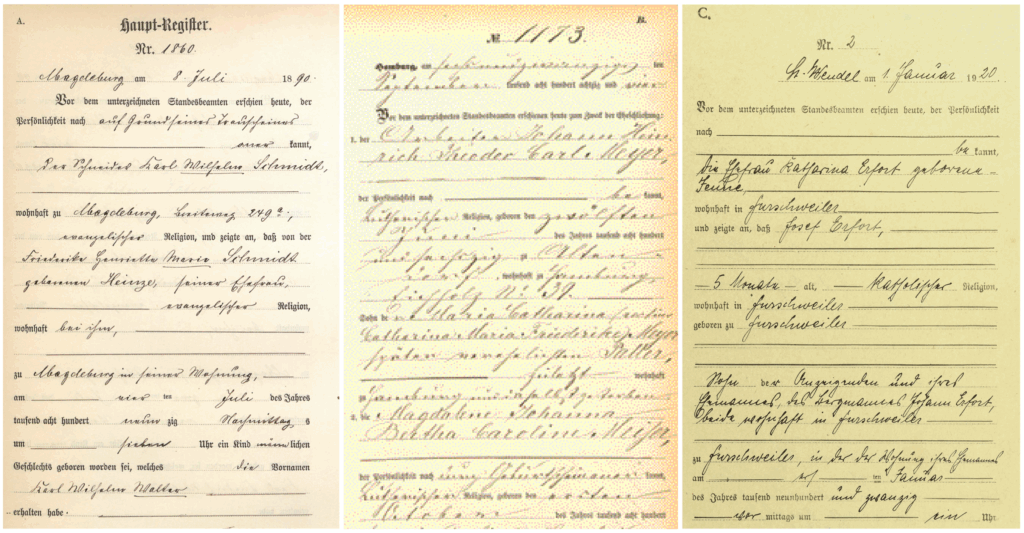 A.
Haupt-Register.
Nr. 1860.
Magdeburg am 8. Juli 1890.
Vor dem unterzeichneten Standesbeamten erschien heute, der
Persönlichkeit nach auf Grund seines Trauscheines
kannt,
der Schneider Karl Wilhelm Schmidt,
wohnhaft zu Magdeburg, Breiteweg 249a.,
evangelischer Religion, und zeigte an, daß von der
Friederike Henriette Marie Schmidt
geborenen Heinze, seiner Ehefrau,
evangelischer Religion,
wohnhaft bei ihm,
zu Magdeburg in seiner Wohnung,
am vier ten Juli des Jahres
tausend acht hundert neun zig Nachmittags
um sieben Uhr ein Kind männlichen
Geschlechts geboren worden sei, welches die Vornamen
Karl Wilhelm Walter
erhalten habe.
B.
№ 1173.
Hamburg, am sechsundzwanzigsten
September tausend acht hundert achtzig und vier
Vor dem unterzeichneten Standesbeamten erschienen heute zum Zweck der Eheschließung:
1. der Arbeiter Johann Hein-
rich Theodor Carl Meyer,
der Persönlichkeit nach be kannt,
lutherischer Religion, geboren den zwölften
Juni des Jahres tausend acht hundert
und sechzig zu Alten-
dorf, wohnhaft zu Hamburg,
Eichholz No. 39.
Sohn der Maria Catharina
Catharina Maria Friederike Meyer
später verehelichten
zuletzt wohnhaft
zu Hamburg und daselbst gestorben
2. die Magdalene Johanna
Bertha Caroline Meyer,
der Persönlichkeit nach kannt,
lutherischer Religion, geboren den ersten
October des Jahres tausend acht hundert
C.
Nr. 2
St. Wendel am 1. Januar 1920.
Vor dem unterzeichneten Standesbeamten erschien heute, der Persönlichkeit
nach
be kannt,
die Ehefrau Katharina Erfort geborene
wohnhaft in Furschweiler
und zeigte an, daß Josef Erfort,
5 Monate alt, katholischer Religion,
wohnhaft in Furschweiler
geboren zu Furschweiler
Sohn der Anzeigenden und ihres
Ehemannes, des Bergmannes Johann Erfort,
beide wohnhaft in Furschweiler
zu Furschweiler, in der Wohnung ihres Ehemannes
am ten Januar
des Jahres tausend neunhundert und zwanzig
vor mittags um ein Uhr